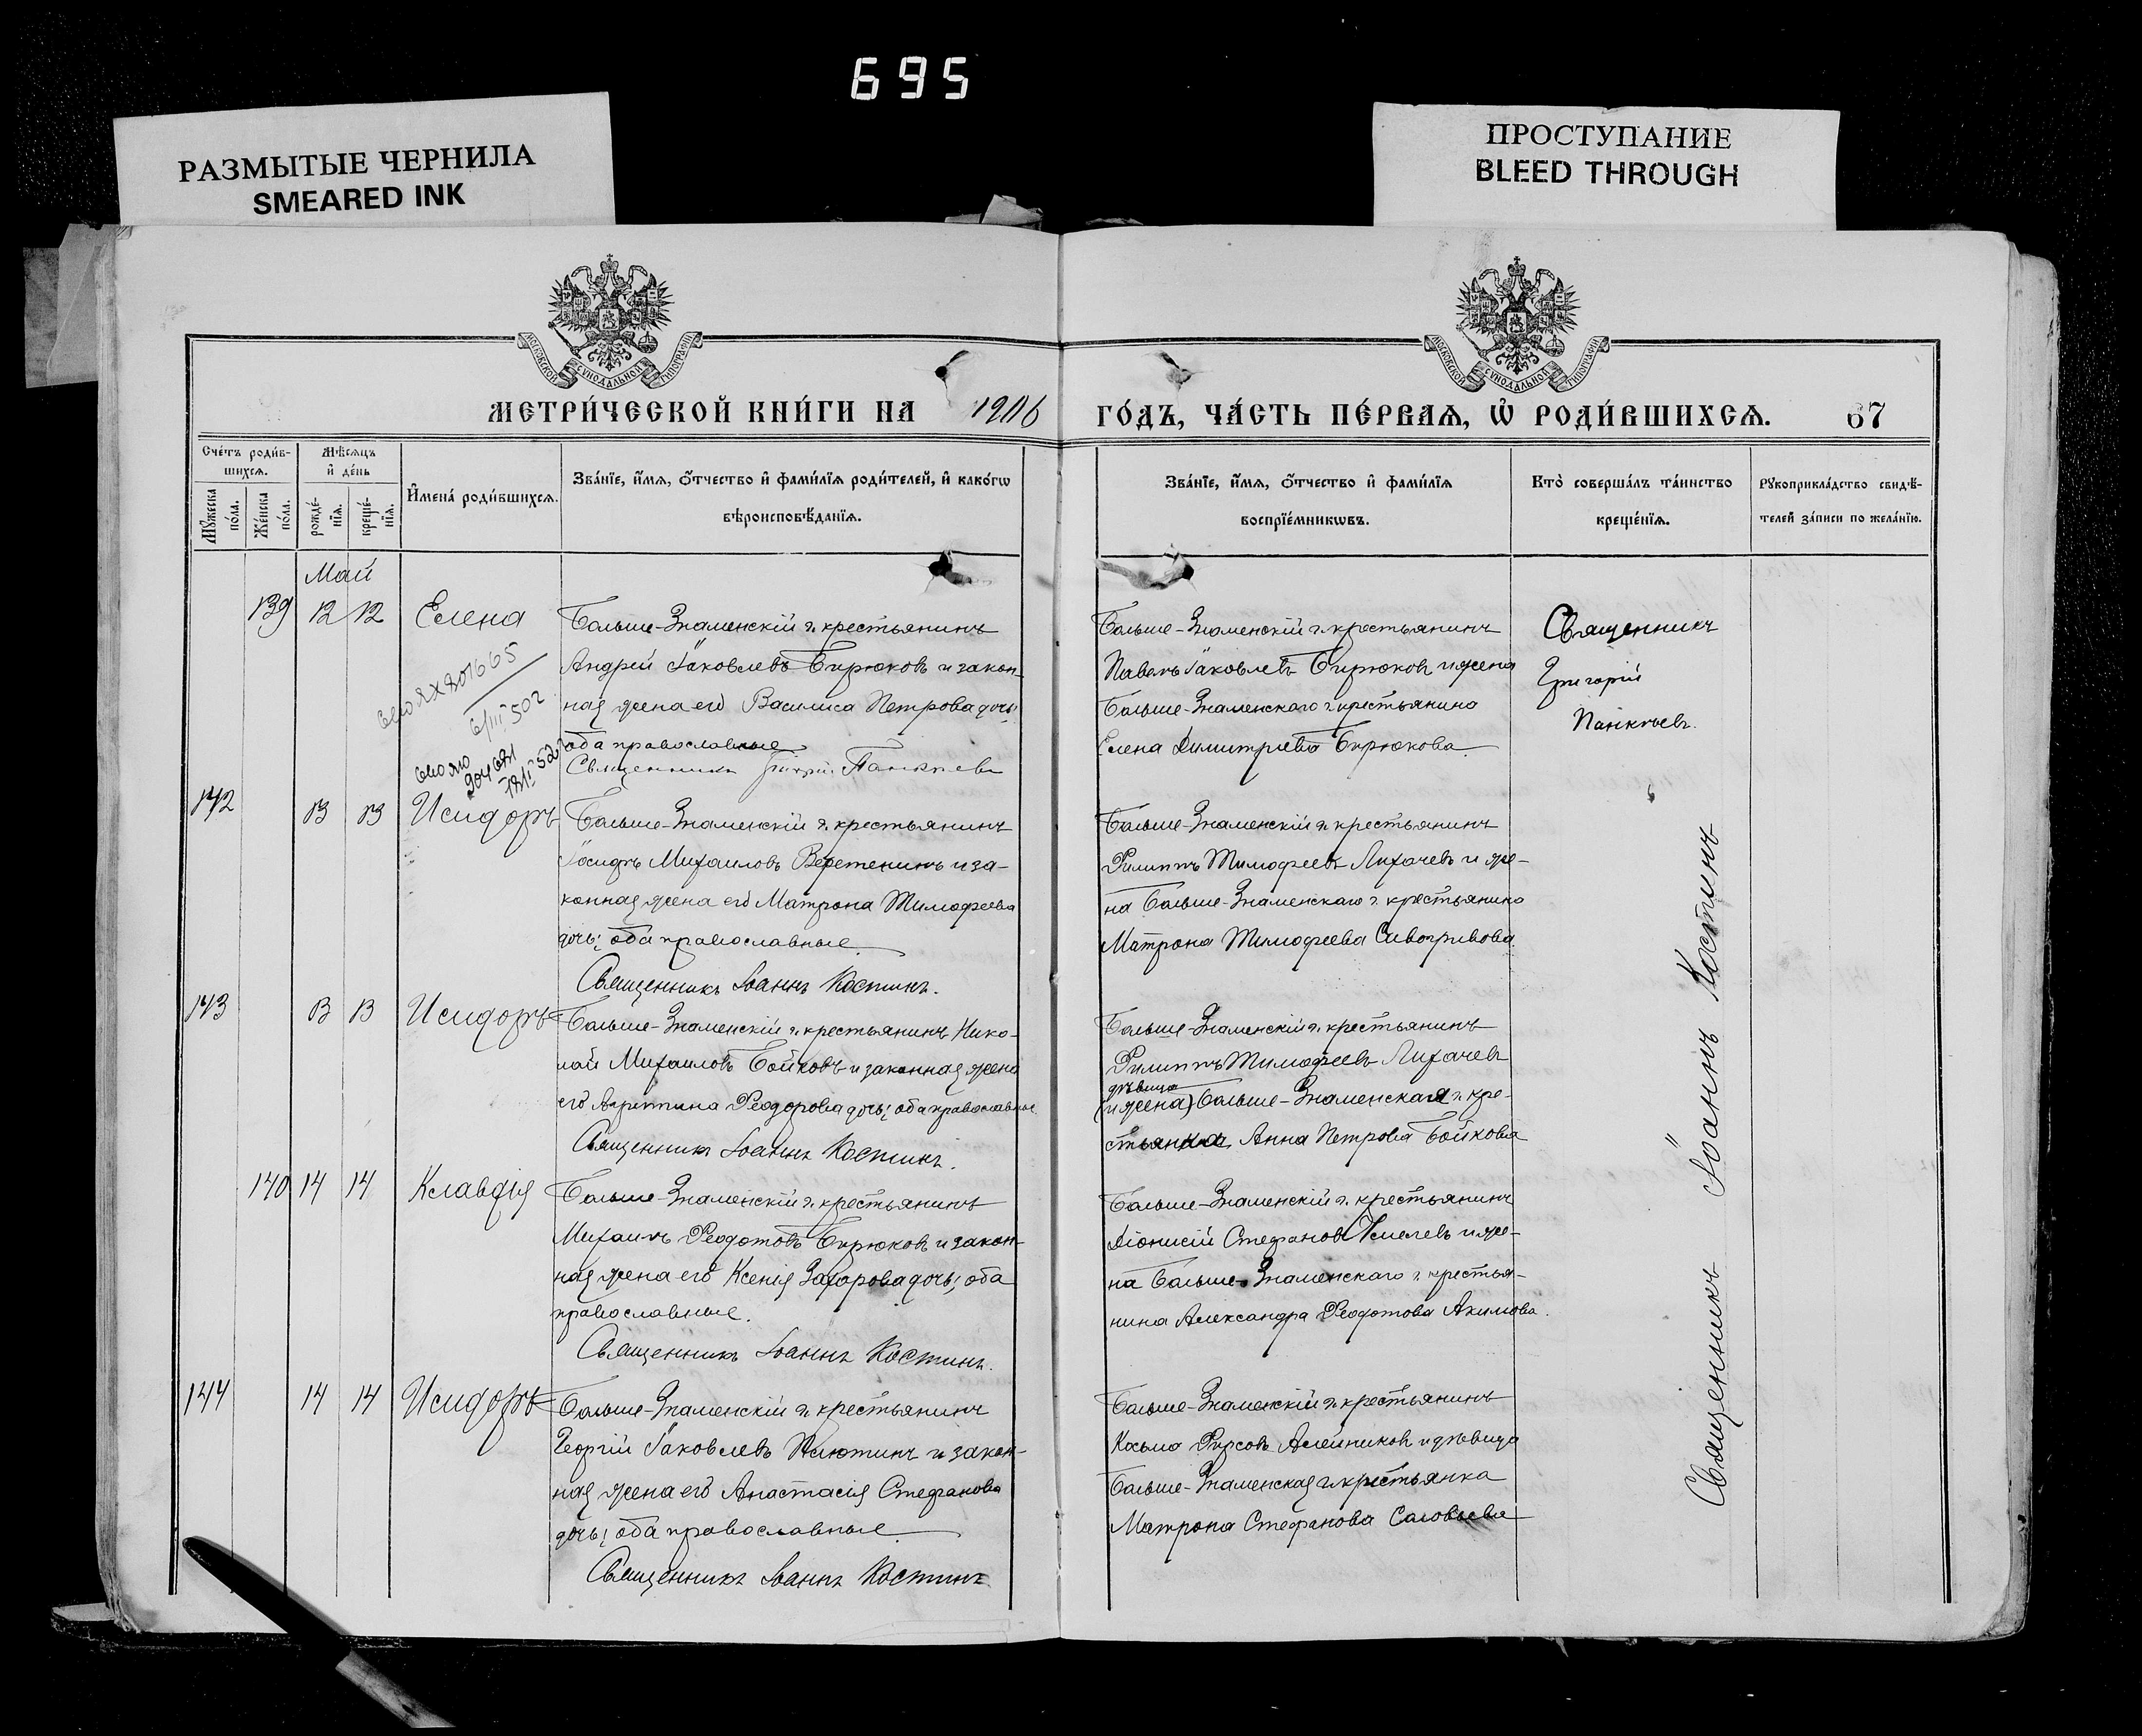 695
РАЗМЫТЫЕ ЧЕРНИЛА
SMEARED INK
ПРОСТУПАНИЕ
BLEED THROUGH
МОСКОВСКОЙ СѴНОДАЛЬНОЙ ТИПОГРАФІИ
МОСКОВСКОЙ СѴНОДАЛЬНОЙ ТИПОГРАФІИ
МЕТРИ́ЧЕСКОЙ КНИ́ГИ НА 1906 ГО́ДЪ, ЧА́СТЬ ПЕ́РВАѦ, Ѡ҆ РОДИ́ВШИХСѦ. 67
Сче́тъ роди́в-
шихсѧ.
Мꙋ́жеска по́ла.
Же́нска по́ла.
Мѣ́сѧцъ
и҆ де́нь
рожде́-
нїѧ.
креще́-
нїѧ.
И҆мена̀ роди́вшихсѧ.
Зва́нїе, и҆́мѧ, ѻ҆́тчество и҆ фами́лїѧ роди́телей, и҆ како́гѡ
вѣроисповѣ́данїѧ.
Зва́нїе, и҆́мѧ, ѻ҆́тчество и҆ фами́лїѧ
воспрїе́мникѡвъ.
Кто̀ соверша́лъ та́инство
креще́нїѧ.
Рꙋкоприкла́дство свидѣ́-
телей за́писи по жела́нїю.
Май
139 12 12 Елена
Больше-Знаменскій г. крестьянинъ
Андрей Іаковлевъ Бирюковъ и закон-
ная жена его Василиса Петрова дочь;
оба православные
Священникъ Григорій Панкѣев
Больше-Знаменскій г. крестьянинъ
Павелъ Іаковлевъ Бирюковъ и жена
Больше-Знаменскаго г. крестьянина
Елена Димитріева Бирюкова
Священникъ
Григорій
Панкѣевъ.
142 13 13 Исидоръ
Больше-Знаменскій г. крестьянинъ
Іосифъ Михаиловъ Веретенинъ и за-
конная жена его Матрона Тимофеева
дочь; оба православные
Священникъ Іоаннъ Костинъ.
Больше-Знаменскій г. крестьянинъ
Филиппъ Тимофеевъ Лихачевъ и же-
на Больше-Знаменскаго г. крестьянина
Матрона Тимофеева Сивогривова.
143 13 13 Исидоръ
Больше-Знаменскій г. крестьянинъ Нико-
лай Михаиловъ Бойковъ и законная жена
его Агриппина Феодорова дочь; оба православные.
Священникъ Іоаннъ Костинъ.
Больше-Знаменскій г. крестьянинъ
Филиппъ Тимофеевъ Лихачевъ
дѣвица
(и жена) Больше-Знаменская г. кре-
стьянка Анна Петрова Бойкова
140 14 14 Клавдія
Больше-Знаменскій г. крестьянинъ
Михаилъ Феодотовъ Бирюковъ и закон-
ная жена его Ксенія Захорова дочь; оба
православные.
Священникъ Іоаннъ Костинъ.
Больше-Знаменскій г. крестьянинъ
Діонисій Стефановъ Кмелевъ и же-
на Больше-Знаменскаго г. крестья-
нина Александра Феодотова Акимова.
144 14 14 Исидоръ
Больше-Знаменскій г. крестьянинъ
Георгій Іаковлевъ Илютинъ и закон-
ная жена его Анастасія Стефанова
дочь; оба православные.
Священникъ Іоаннъ Костинъ
Больше-Знаменскій г. крестьянинъ
Косьма Фирсовъ Алейниковъ и дѣвица
Больше-Знаменская г. крестьянка
Матрона Стефанова Соловьева
Священникъ Іоаннъ Костинъ